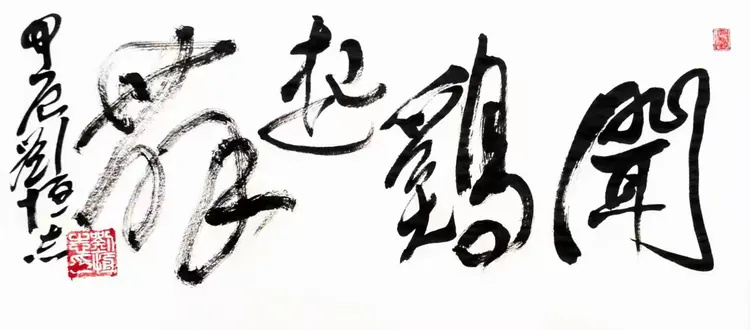 聞鷄起舞
甲辰劉恒志